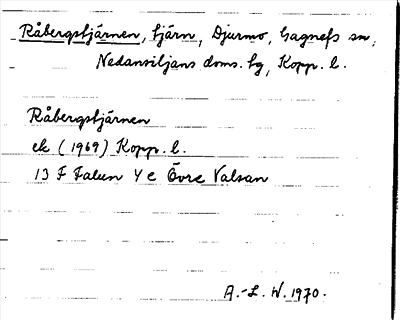 Råbergstjärnen, tjärn, Djurmo, Gagnefs sn,
Nedansiljans doms. fg, Kopp. l.
Råbergstjärnen
ek (1969) Kopp. l.
13 F Falun 4 c Övre Valsan
A.-L. W. 1970.